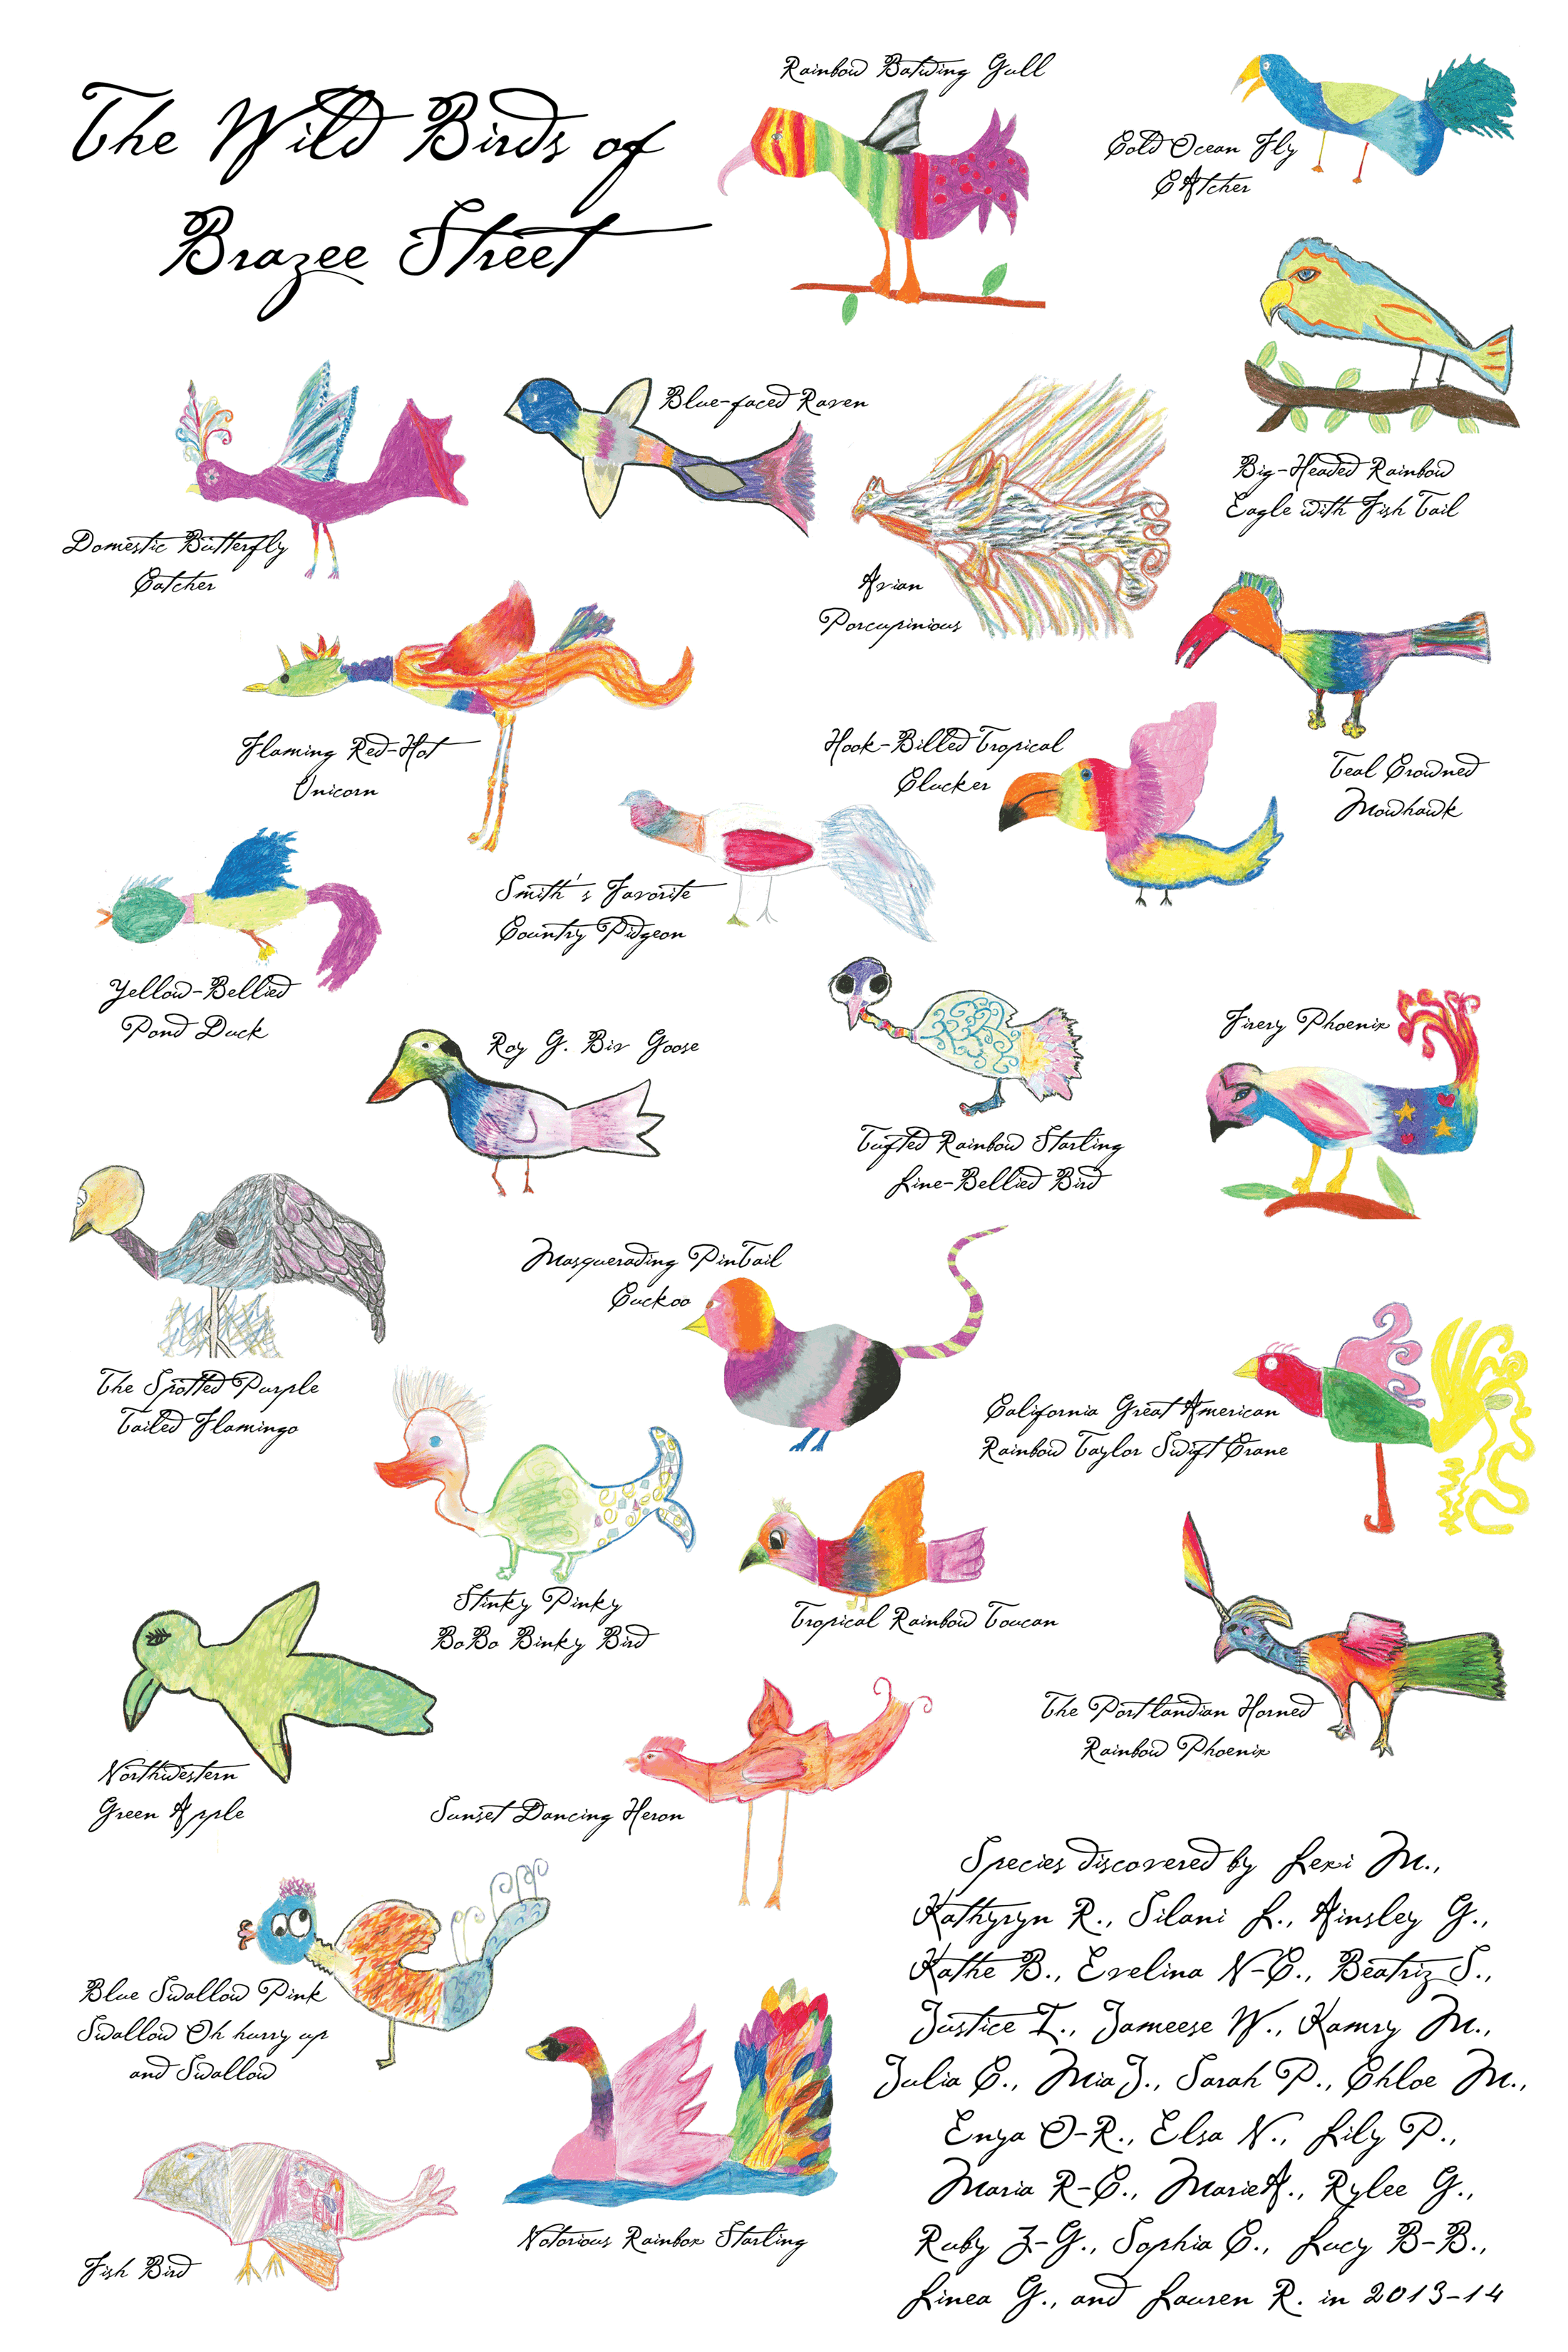 The Wild Birds of
Brazee Street
Rainbow Batwing Gull
Cold Ocean Fly
CAtcher
Big-Headed Rainbow
Eagle with Fish Tail
Blue-faced Raven
Domestic Butterfly
Catcher
Avian
Porcupinious
Flaming Red-Hot
Unicorn
Hook-Billed Tropical
Clucker
Teal Crowned
Mowhawk
Smith's Favorite
Country Pidgeon
Yellow-Bellied
Pond Duck
Roy G. Biv Goose
Firery Phoenix
Tufted Rainbow Starling
Line-Bellied Bird
Masquerading PinTail
Cuckoo
The Spotted Purple
Tailed Flamingo
California Great American
Rainbow Taylor Swift Crane
Stinky Pinky
BoBo Binky Bird
Tropical Rainbow Toucan
The Portlandian Horned
Rainbow Phoenix
Northwestern
Green Apple
Sunset Dancing Heron
Blue Swallow Pink
Swallow Oh hurry up
and Swallow
Notorious Rainbox Starling
Fish Bird
Species discovered by Lexi M.,
Kathyryn R., Silani L., Ainsley G.,
Kathe B., Evelina N-C., Beatriz S.,
Justice I., Jameese W., Kamry M.,
Julia C., Mia J., Sarah P., Chloe M.,
Enya O-R., Elsa N., Lily P.,
Maria R-C., MarieA., Rylee G.,
Ruby Z-G., Sophia C., Lucy B-B.,
Linea G., and Lauren R. in 2013-14